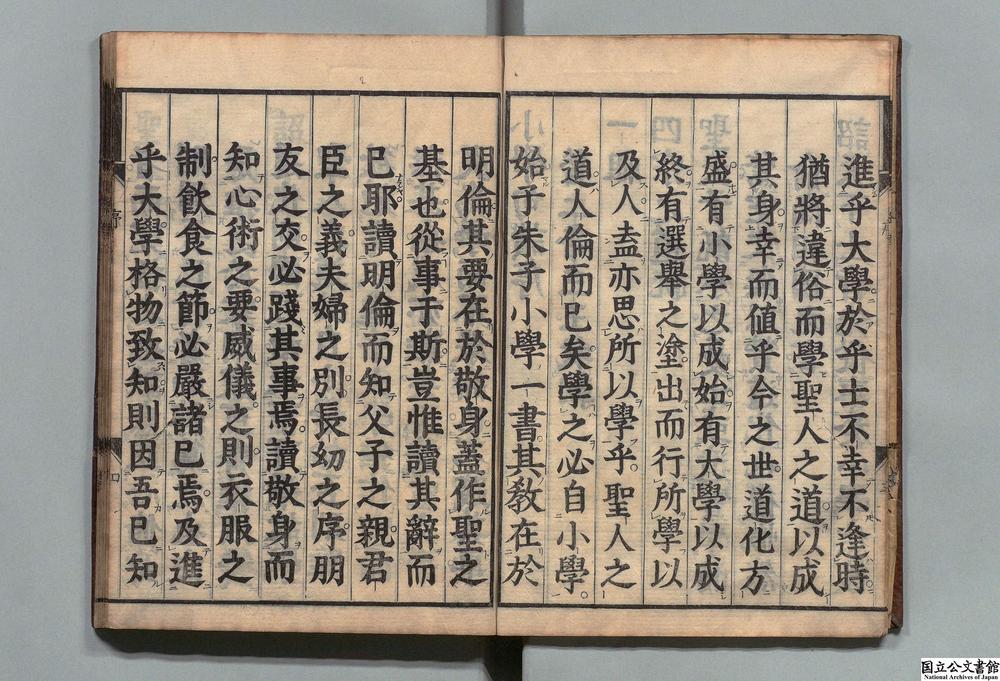 進乎大學於乎士不幸不逢時
猶將違俗而學聖人之道以成
其身幸而値乎今之世道化方
盛有小學以成始有大學以成
終有選舉之塗出而行所學以
及人盍亦思所以學乎聖人之
道人倫而已矣學之必自小學
始于朱子小學一書其教在於
明倫其要在於敬身蓋作聖之
基也從事于斯豈惟讀其辭而
已耶讀明倫而知父子之親君
臣之義夫婦之別長幼之序朋
友之交必踐其事焉讀敬身而
知心術之要威儀之則衣服之
制飲食之節必嚴諸已焉及進
乎大學格物致知則因吾已知
国立公文書館
National Archives of Japan